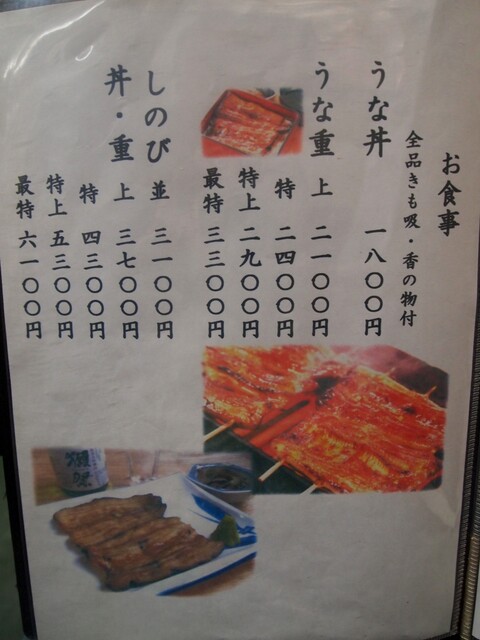 お食事
全品きも吸・香の物付
うな丼 一八〇〇円
うな重 上 二一〇〇円
特 二四〇〇円
特上 二九〇〇円
最特 三三〇〇円
しのび 並 三一〇〇円
丼・重 上 三七〇〇円
特 四三〇〇円
特上 五三〇〇円
最特 六一〇〇円
獺祭